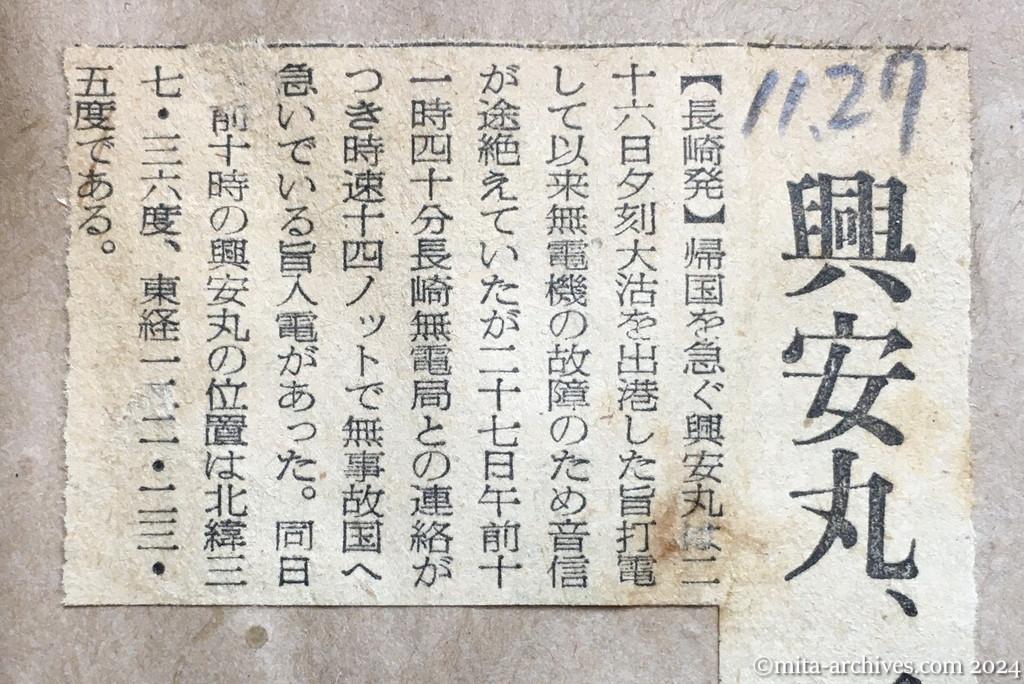 11.27
興安丸、
【長崎発】帰国を急ぐ興安丸は二
十六日夕刻大沽を出港した旨打電
して以来無電機の故障のため音信
が途絶えていたが二十七日午前十
一時四十分長崎無電局との連絡が
つき時速十四ノットで無事故国へ
急いでいる旨入電があった。同日
前十時の興安丸の位置は北緯三
七・三六度、東経一二二・二三・
五度である。
©mita-archives.com 2024